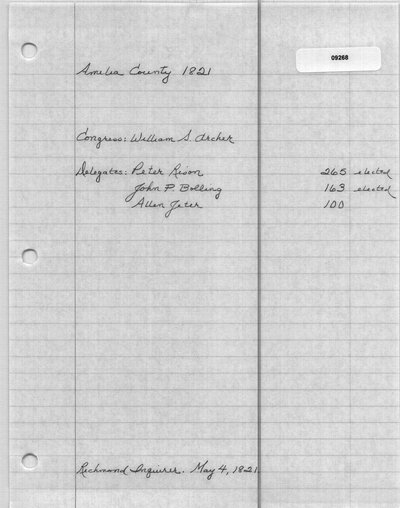 09268
Amelia County 1821
Congress: William S. Archer
Delegates: Peter Rison 265 elected
John P. Bolling 163 elected
Allen Jeter 100
Richmond Inquirer. May 4, 1821